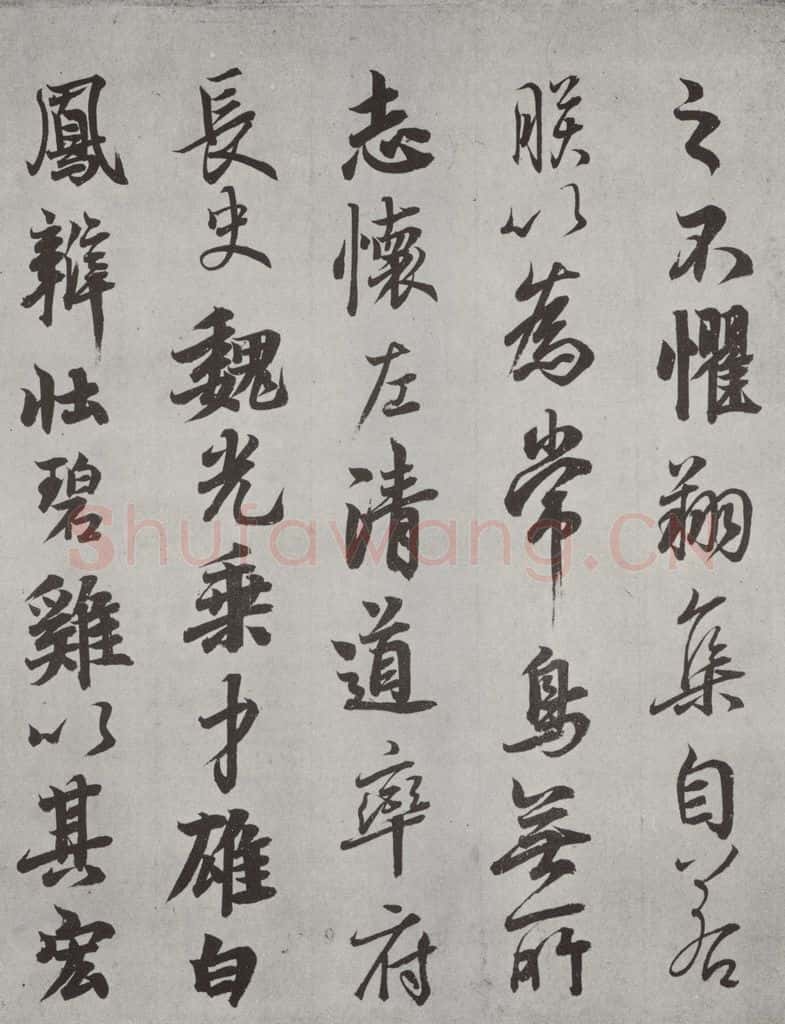 之不懼翔集自若
朕以為常鳥無所
志懷左清道率府
長史魏光乗才雄白
鳳辯壯碧雞以其宏
Shufawang.CN